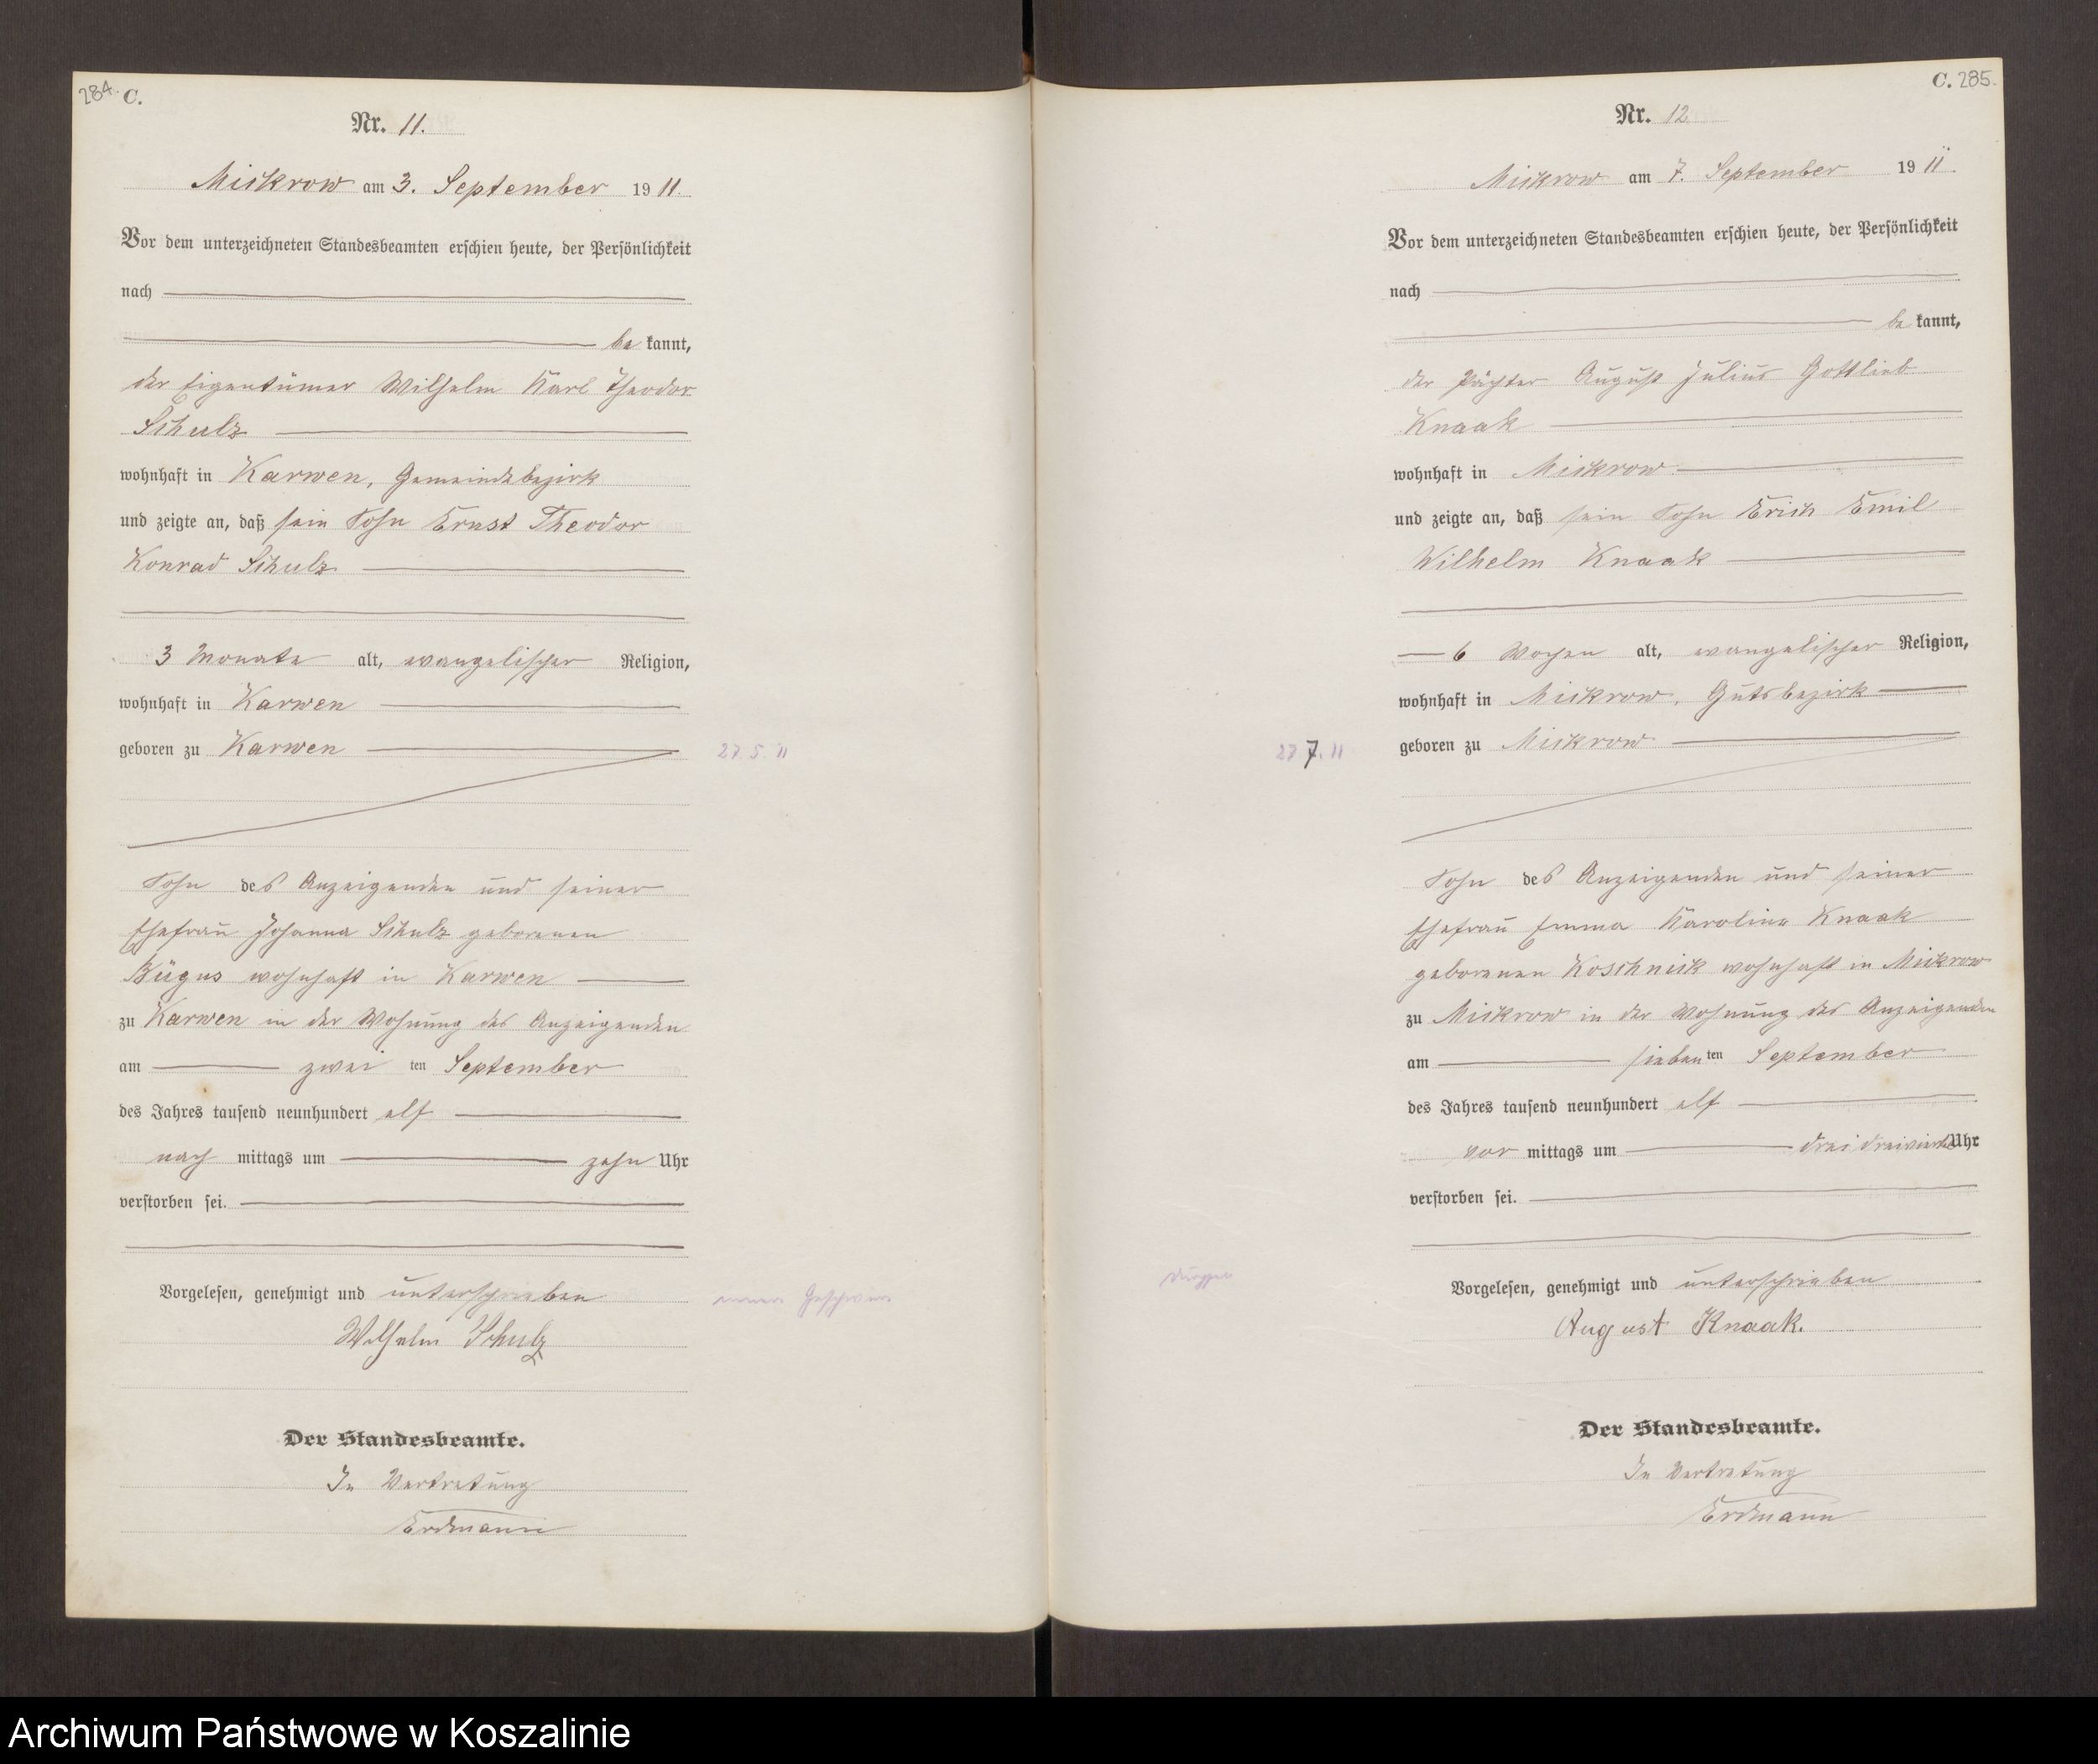 284. C.
Nr. 11.
Mickrow am 3. September 1911.
Vor dem unterzeichneten Standesbeamten erschien heute, der Persönlichkeit
nach
be kannt,
der Eigentümer Wilhelm Karl Theodor
Schulz
wohnhaft in Karwen, Gemeindebezirk
und zeigte an, daß sein Sohn Ernst Theodor
Konrad Schulz
3 Monate alt, evangelischer Religion,
wohnhaft in Karwen
geboren zu Karwen
27. 5. 11
Sohn des Anzeigenden und seiner
Ehefrau Johanna Schulz geborenen
Bügus wohnhaft in Karwen
zu Karwen in der Wohnung des Anzeigenden
am zwei ten September
des Jahres tausend neunhundert elf
nach mittags um zehn Uhr
verstorben sei.
Vorgelesen, genehmigt und unterschrieben
Wilhelm Schulz
Der Standesbeamte.
In Vertretung
Erdmann
C. 285.
Nr. 12.
Mickrow am 7. September 1911.
Vor dem unterzeichneten Standesbeamten erschien heute, der Persönlichkeit
nach
be kannt,
der Pächter August Julius Gottlieb
Knaak
wohnhaft in Mickrow
und zeigte an, daß sein Sohn Erich Emil
Wilhelm Knaak
6 Wochen alt, evangelischer Religion,
wohnhaft in Mickrow, Gutsbezirk
27. 7. 11
geboren zu Mickrow
Sohn des Anzeigenden und seiner
Ehefrau Emma Karoline Knaak
geborenen Koschnick wohnhaft in Mickrow
zu Mickrow in der Wohnung des Anzeigenden
am sieben ten September
des Jahres tausend neunhundert elf
vor mittags um drei dreiviertel Uhr
verstorben sei.
Vorgelesen, genehmigt und unterschrieben
August Knaak.
Der Standesbeamte.
In Vertretung
Erdmann
Archiwum Państwowe w Koszalinie